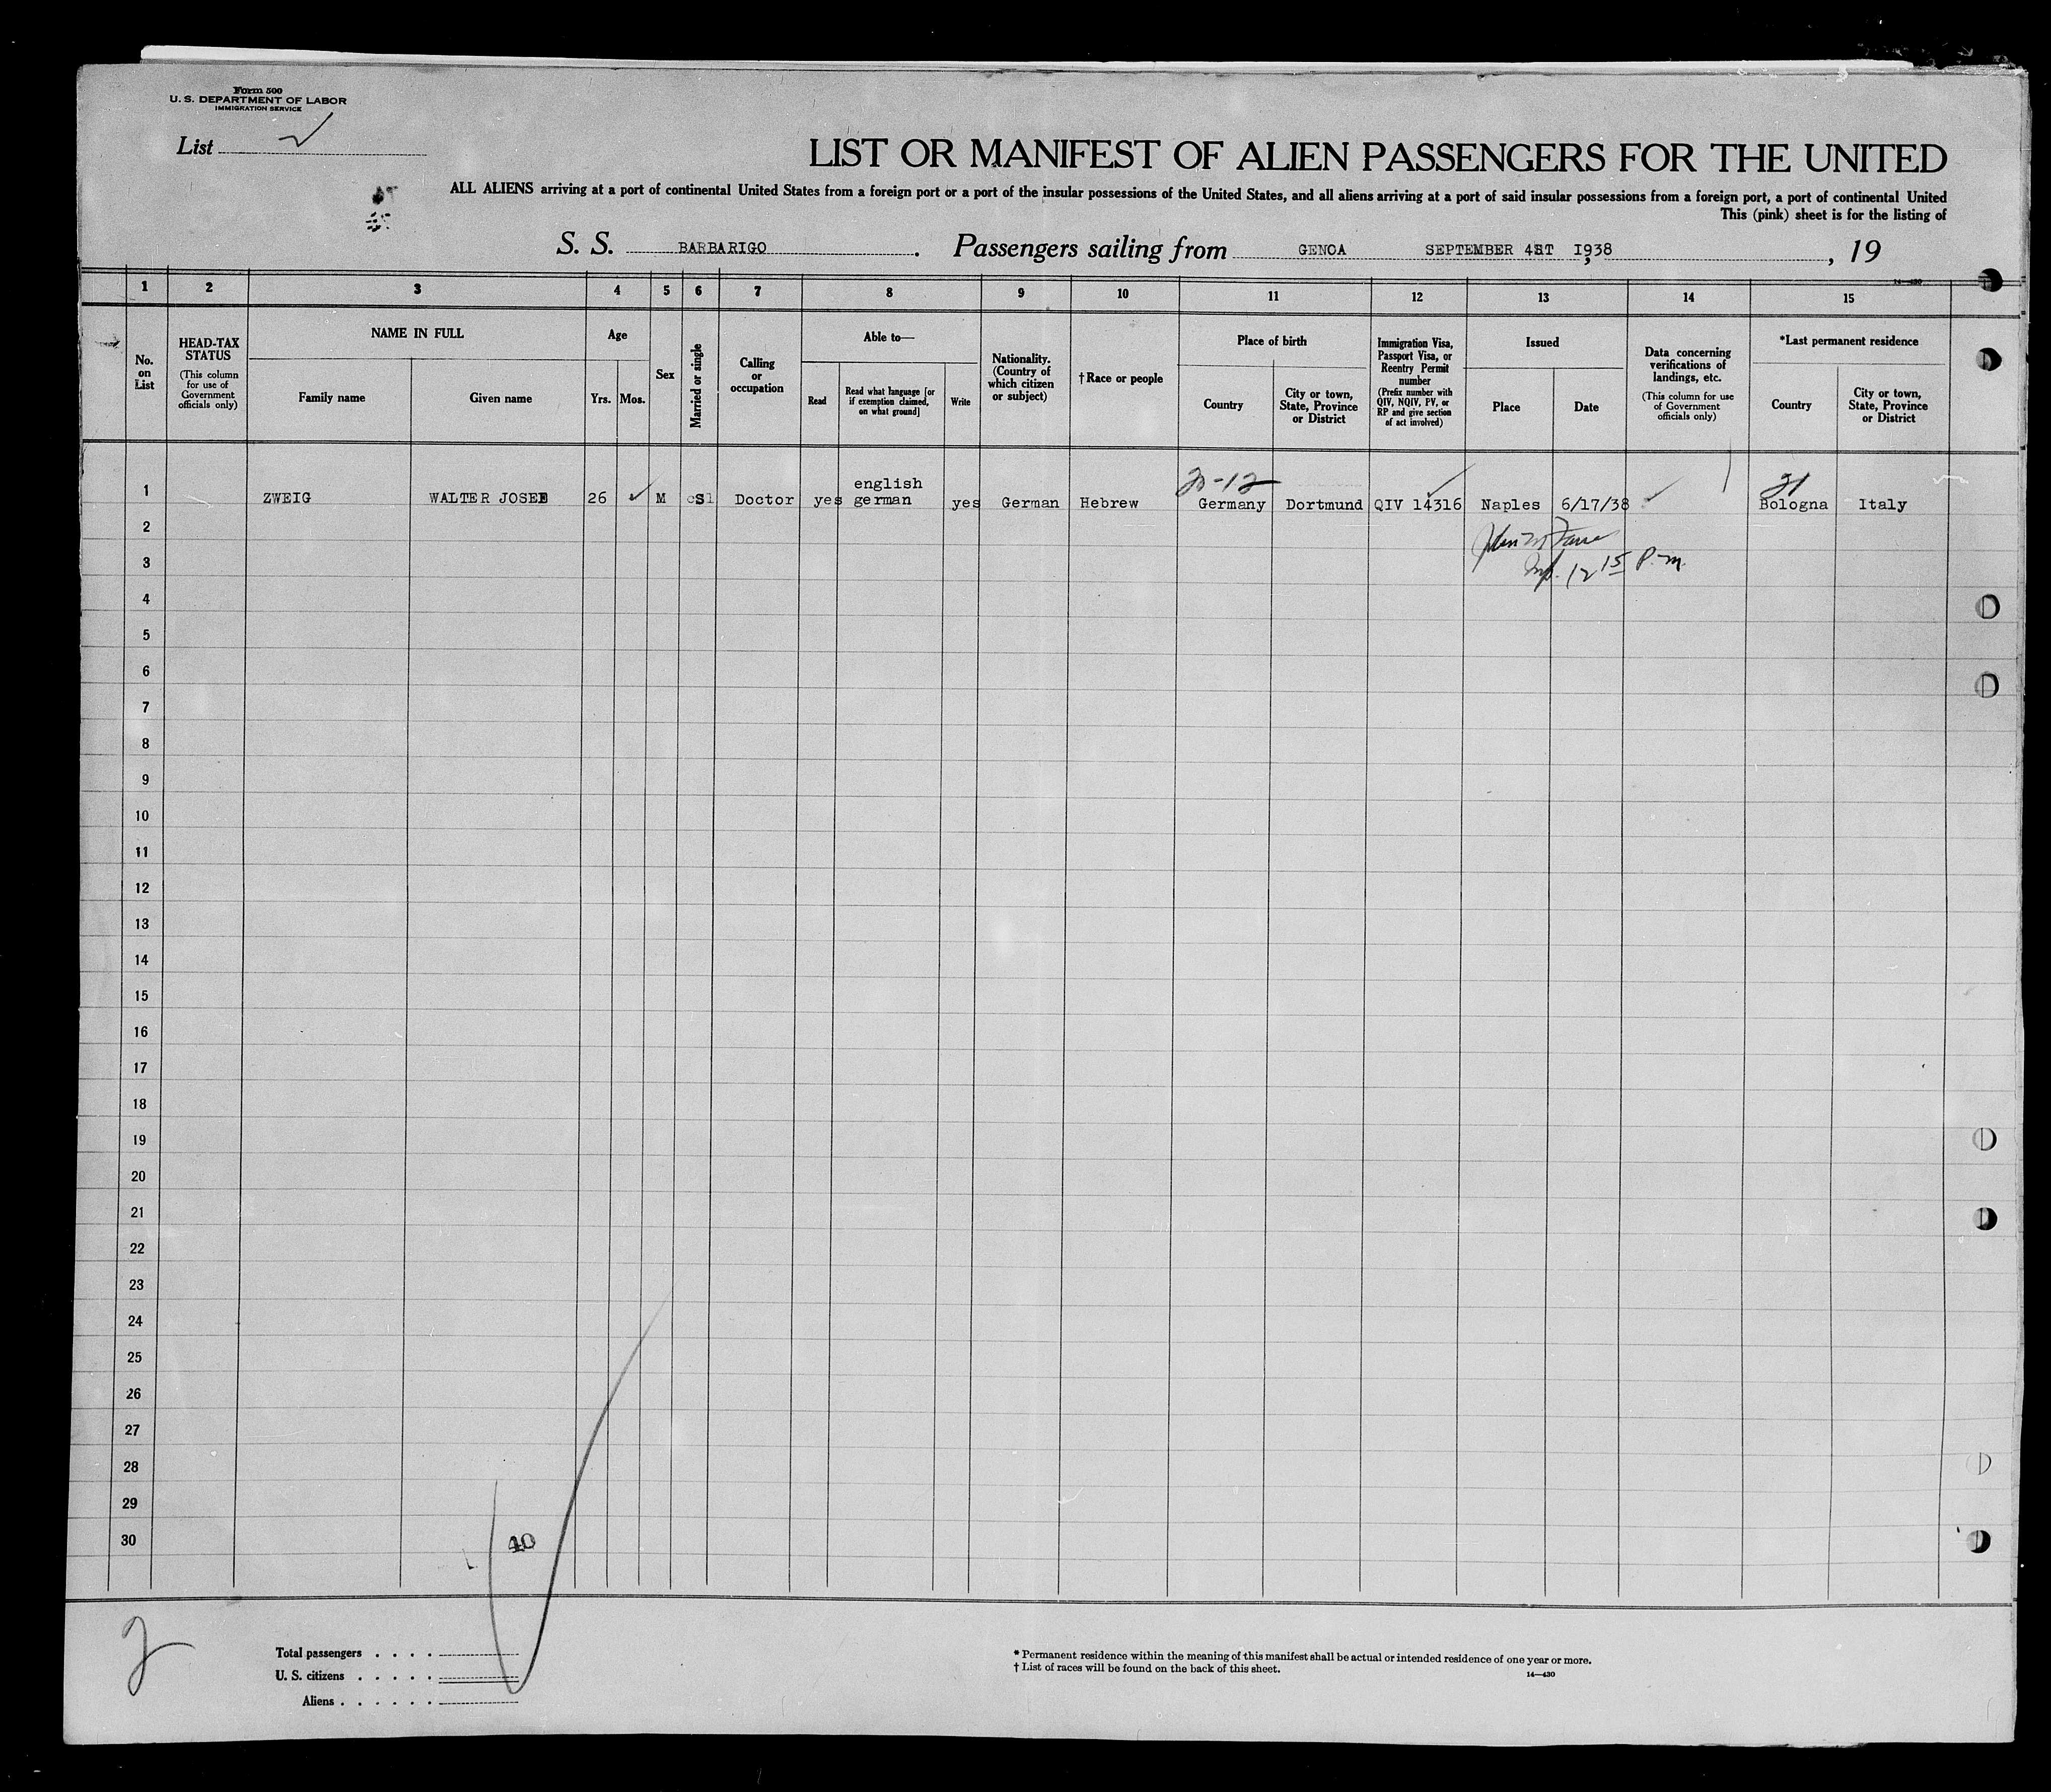 Form 500
U. S. DEPARTMENT OF LABOR
IMMIGRATION SERVICE
List
LIST OR MANIFEST OF ALIEN PASSENGERS FOR THE UNITED
ALL ALIENS arriving at a port of continental United States from a foreign port or a port of the insular possessions of the United States, and all aliens arriving at a port of said insular possessions from a foreign port, a port of continental United
This (pink) sheet is for the listing of
S. S. BARBARIGO. Passengers sailing from GENOA SEPTEMBER 1938, 19
1 2 3 4 5 6 7 8 9 10 11 12 13 14 15
No. on List
HEAD-TAX STATUS
(This column for use of Government officials only)
NAME IN FULL
Family name
Given name
Age
Yrs.
Mos.
Sex
Married or single
Calling or occupation
Able to—
Read
Read what language [or if exemption claimed, on what ground]
Write
Nationality. (Country of which citizen or subject)
†Race or people
Place of birth
Country
City or town, State, Province or District
Immigration Visa, Passport Visa, or Reentry Permit number
(Prefix number with QIV, NQIV, PV, or RP and give section of act involved)
Issued
Place
Date
Data concerning verifications of landings, etc.
(This column for use of Government officials only)
*Last permanent residence
Country
City or town, State, Province or District
20-12
21
english
1 ZWEIG WALTER 26 M S Doctor yes german yes German Hebrew Germany Dortmund QIV 14316 Naples 6/17/38 Bologna Italy
2
3
12 15 P.m.
4
5
6
7
8
9
10
11
12
13
14
15
16
17
18
19
20
21
22
23
24
25
26
27
28
29
30
40
2
Total passengers . . . .
U. S. citizens . . . . .
Aliens . . . . . .
* Permanent residence within the meaning of this manifest shall be actual or intended residence of one year or more.
† List of races will be found on the back of this sheet.
14—430